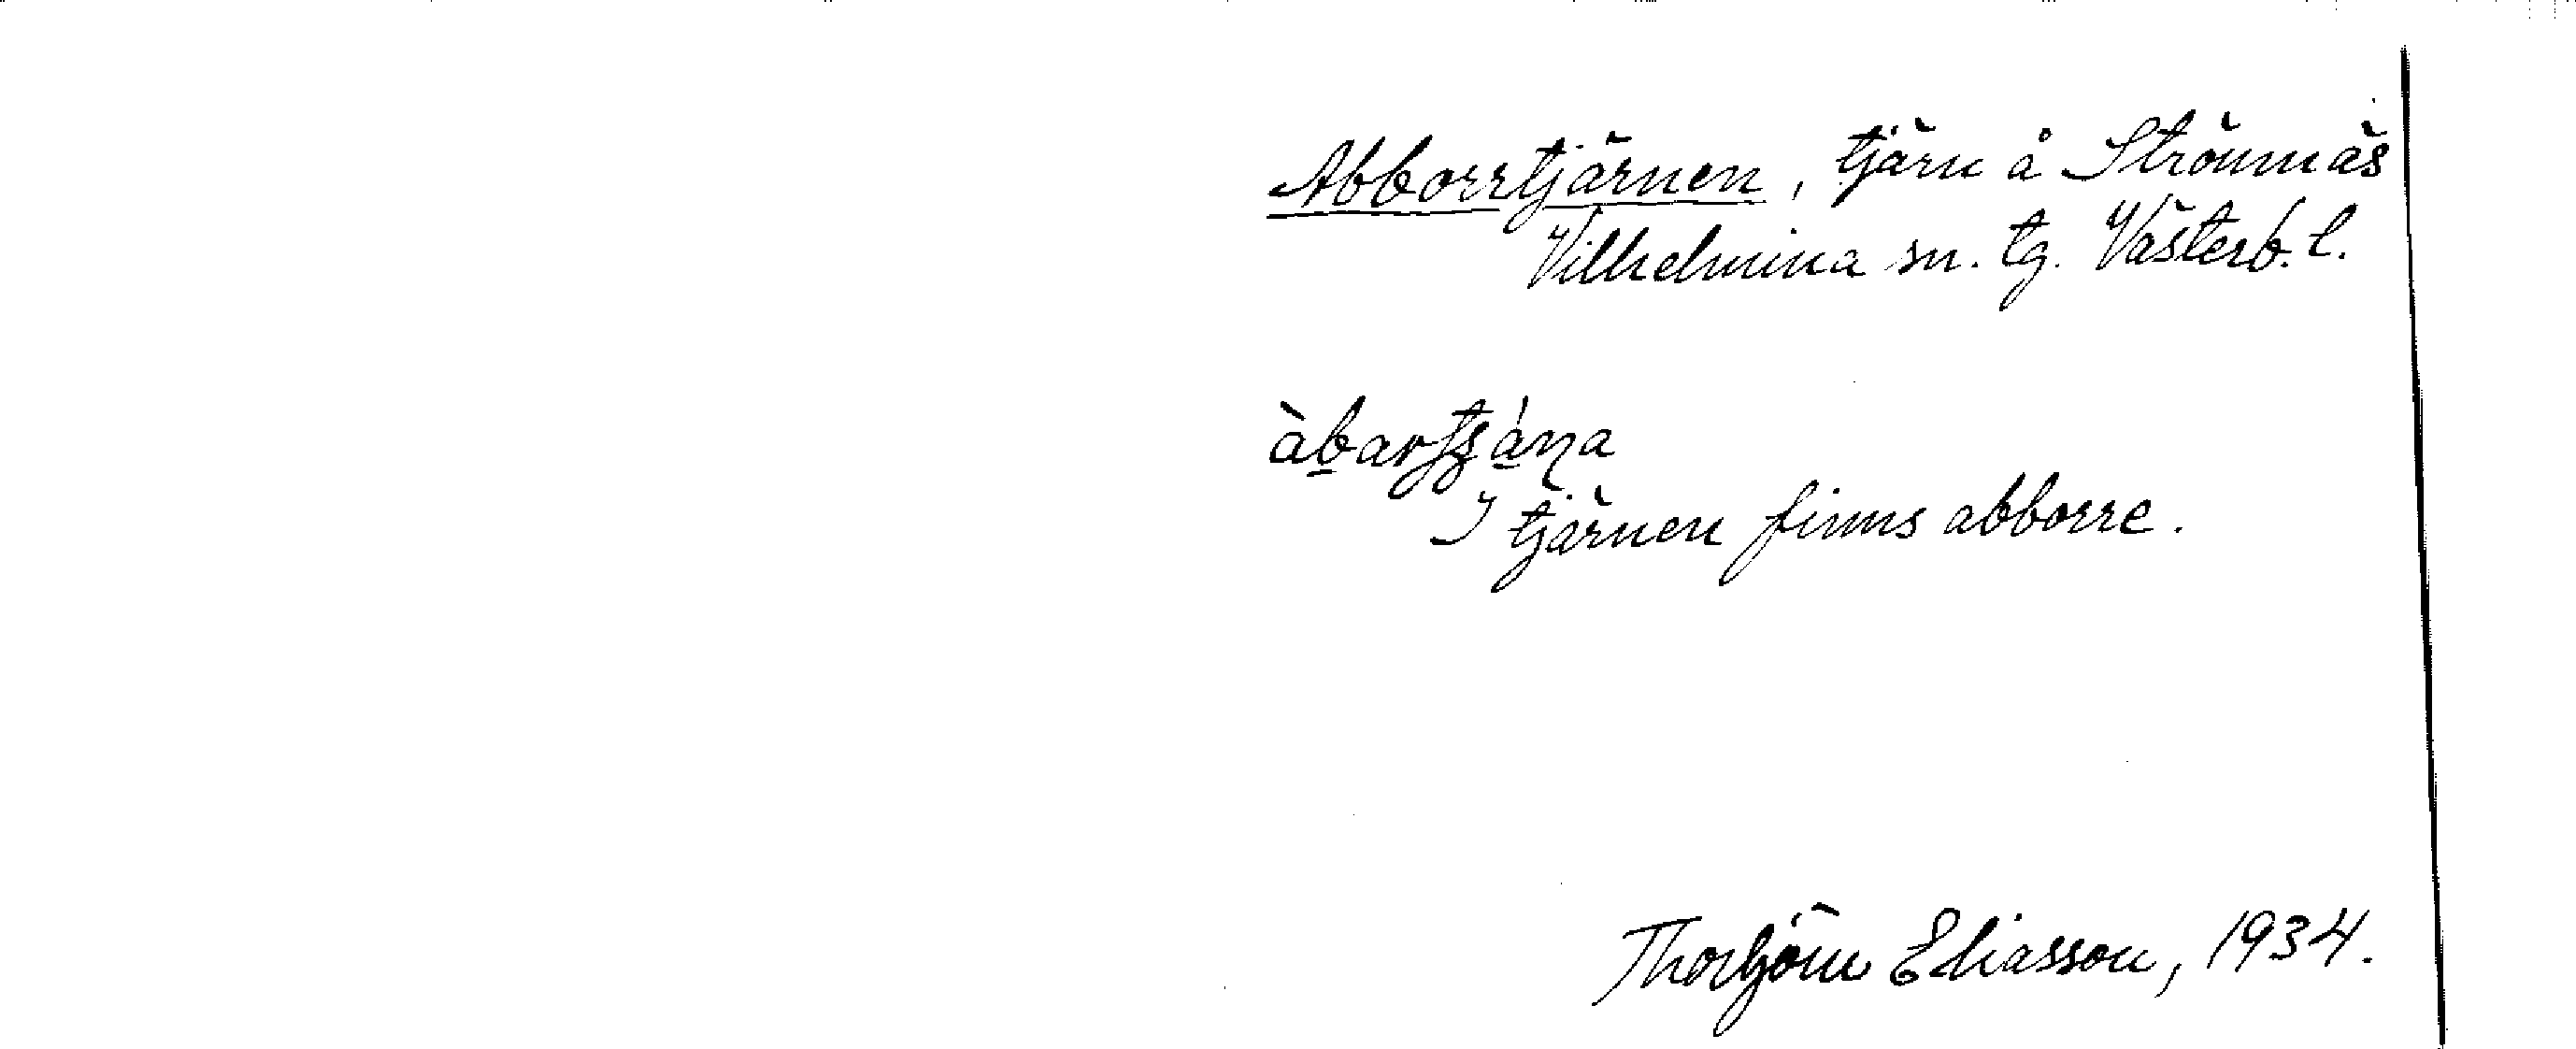 Abborrtjärnen, tjärn å Strömnäs
Vilhelmina sn. tg. Västerb. l.
I tjärnen finns abborre.
Thorbjörn Eliasson, 1934.